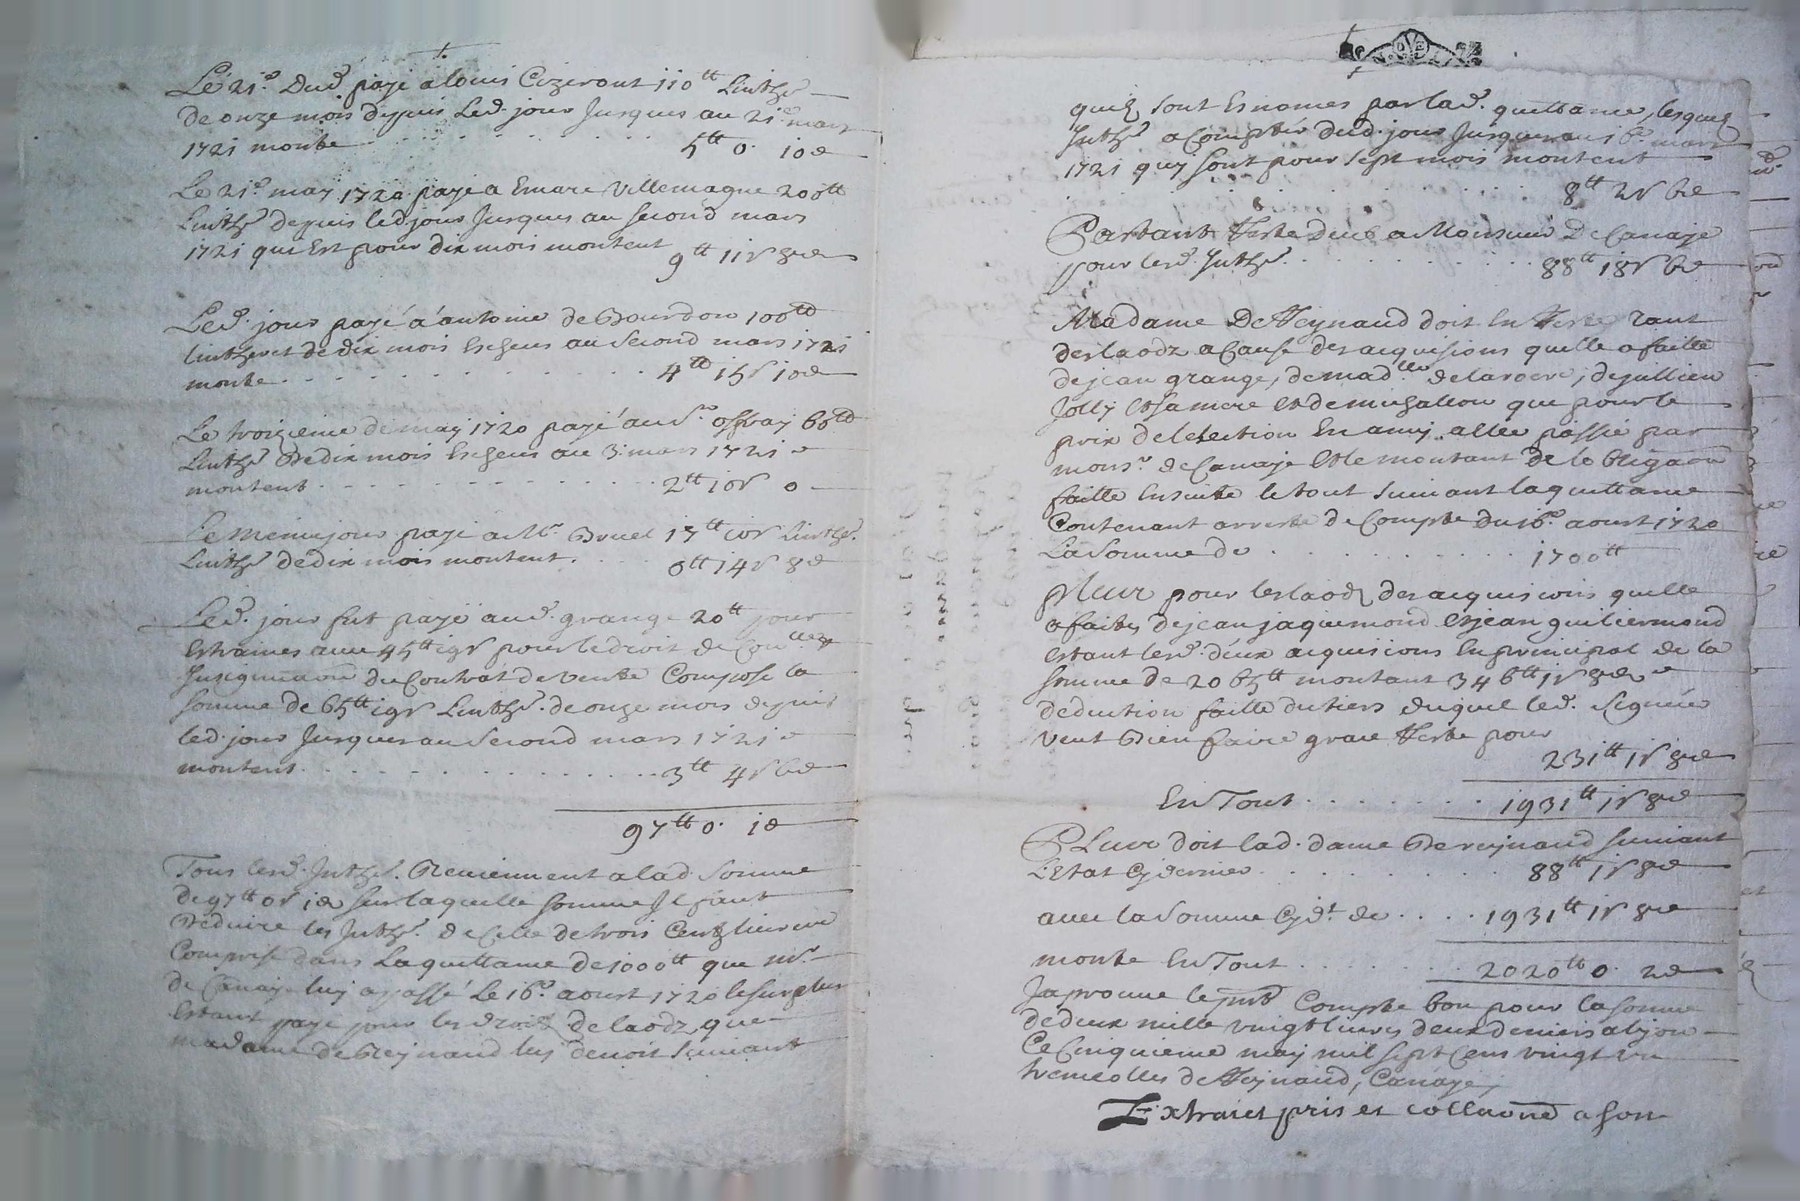 Le 21.e Dud. payé a louis Cizeront 110tt Linthr
de onze mois depuis Led. jour Jusques au 21e mars
1721 monte . . . . . 5tt 0. 10d
Le 21e may 1720 payé a Emare Villemagne 200tt
Linthr depuis led jour Jusques au second mars
1721 qui Est pour dix mois montent 9tt 11s 8d
Led. jour payé a antoine de Bourdon 100tt
linthrest de dix mois Escheus au second mars 1721
monte . . . . . 4tt 15s 10d
Le troizieme de may 1720 payé au Sr offray 60tt
Linthr De dix mois Escheus au 3. mars 1721
montent . . . . . 2tt 10s 0
Le meme jour payé a Mr Bruel 17tt 10s Linthr.
Linthr de dix mois montent . . . 0tt 14s 8d
Led. jour fut payé aud. grange 20tt pour
Estraines avec 45tt 19s pour le droit de Con.
Insignuaon du Contrat de vente Compose la
somme de 65tt 19s Linthr. de onze mois depuis
led. jour Jusques au second mars 1721
montent . . . . . 3tt 4s 6d
97tt 0. 1d
Tous lesd. Inthr. Reviennent a lad. somme
de 97tt 0s 1d sur laquelle somme Il faut
Déduire les Inthr. de Celle de trois Cent livres
Comprise dans La quittance de 1000tt que mr
de Canaye luy a passé Le 16e aoust 1720 le surplus
Estant payé pour les droits de laodz que
madame de Reynaud luy devoit suivant
quilz sont Esnomés par lad. quittance, lesquelz
Inthr a Compter dud. jour Jusques au 16e mars
1721 quy sont pour sept mois montent
8tt 2s 6d
Partant Reste deub a Monsieur De Canaye
pour lesd. Inthr. . . . . 88tt 18s 6d
Madame De Reynaud doit En Reste tant
des laodz a Cause des acquisions quelle a faitte
de jean grange, de madlle delaroere, de jullien
Jolly Et sa mere Et de mugalleou que pour le
prix de lelection En amy. allée passée par
monsr. de Canaye Et le montant de lobligaon
faitte Ensuitte le tout suivant la quittance
Contenant arreste de Compte du 16e. aoust 1720
La somme de . . . . . 1700tt
Plus pour les laodz des acquisicons quelle
a faites de jean jaquemond Et jean guiliermond
Estant lesd. deux acquisicons En principal de la
somme de 2065tt montant 346tt 1s 8d
deduction faitte du tiers duquel led. Seigneur
veut bien faire grace Reste pour
231tt 1s 8d
En Tout . . . . . 1931tt 1s 8d
Plus doit lad. dame De reynaud suivant
L'Etat Cy dernier . . . . . 88tt 1s 8d
avec la somme Cy dt de . . . . 1931tt 1s 8d
monte En Tout . . . . . 2020tt 0. 2d
Japrouve le prnt Compte bon pour la somme
de deux mille vingt livres deux deniers a lyon
Ce Cinquieme may mil sept Cens vingt un
tremeolles de Reynaud, Canaye,
Extraict pris et collaonné a son